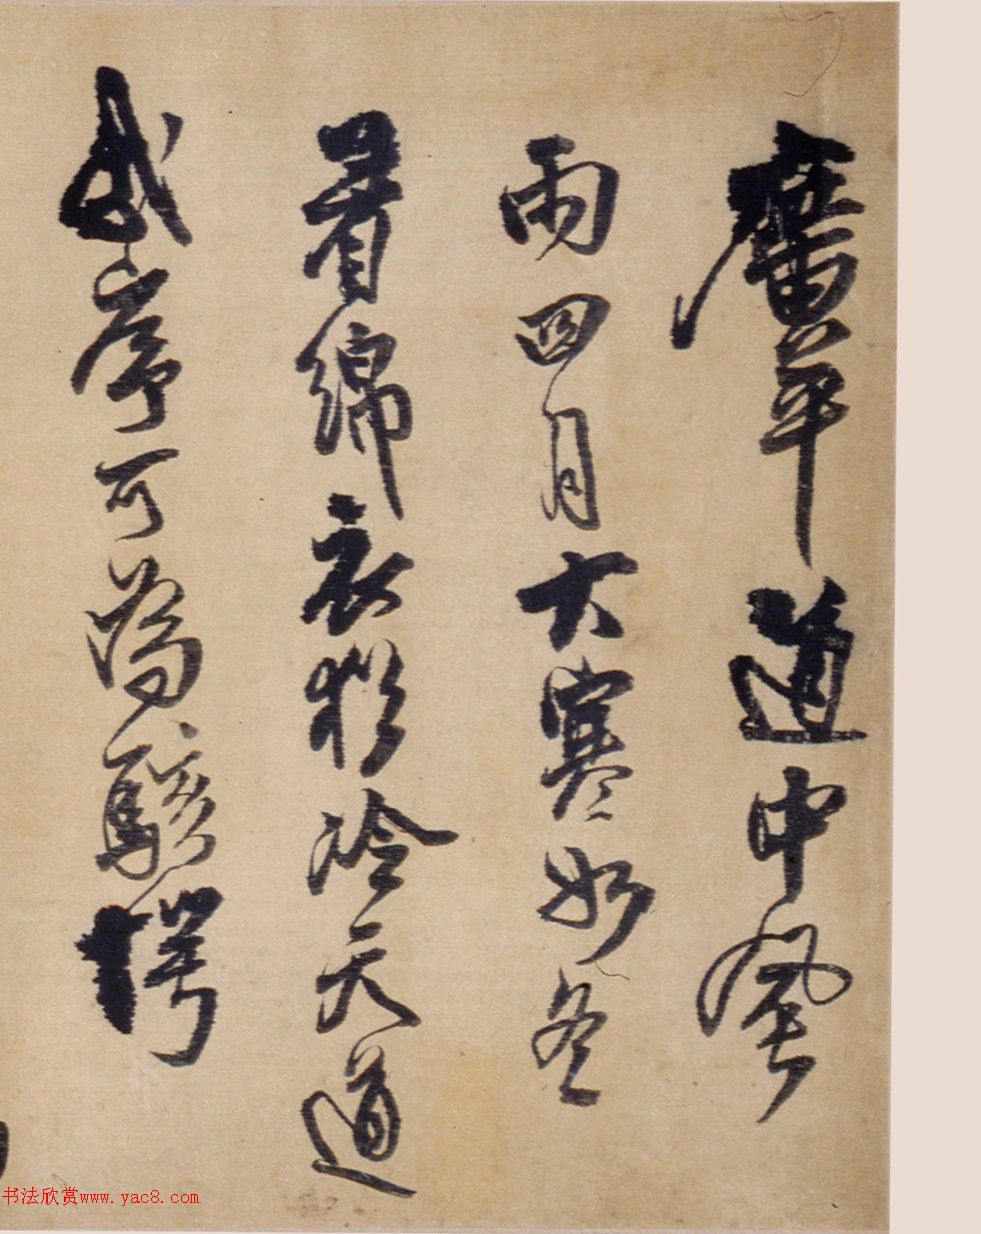 廣平道中風
雨四月大寒如冬
著綿衣猶冷天道
弍序可為駭愕
书法欣赏www.yac8.com